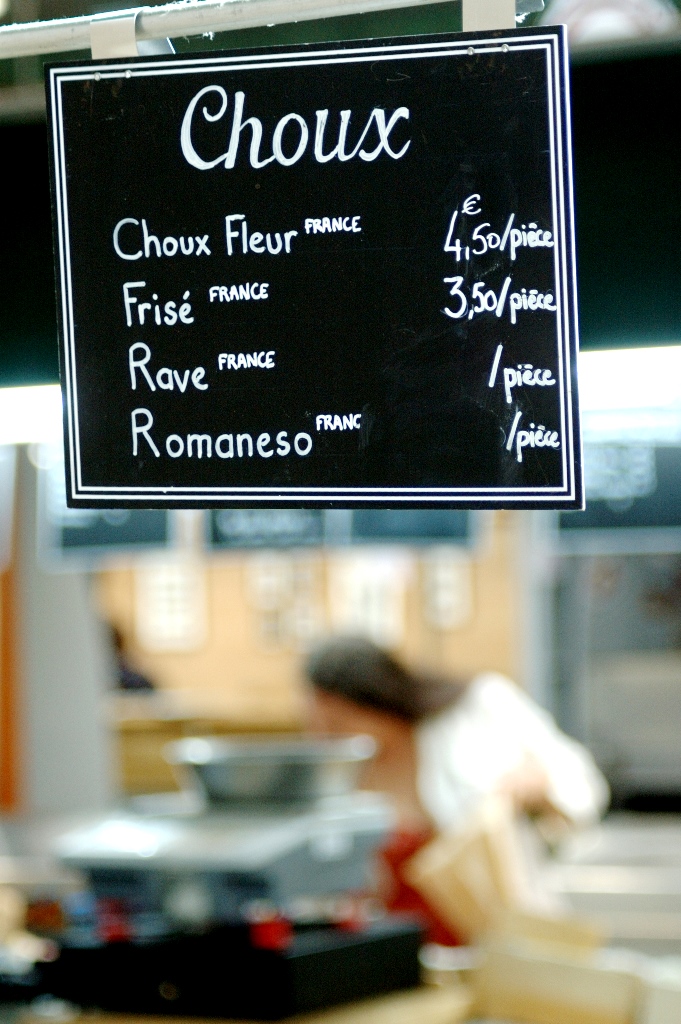 Choux
Choux Fleur FRANCE 4,50€/piēce
Frisé FRANCE 3,50/piēce
Rave FRANCE /piēce
Romaneso FRANC /piēce